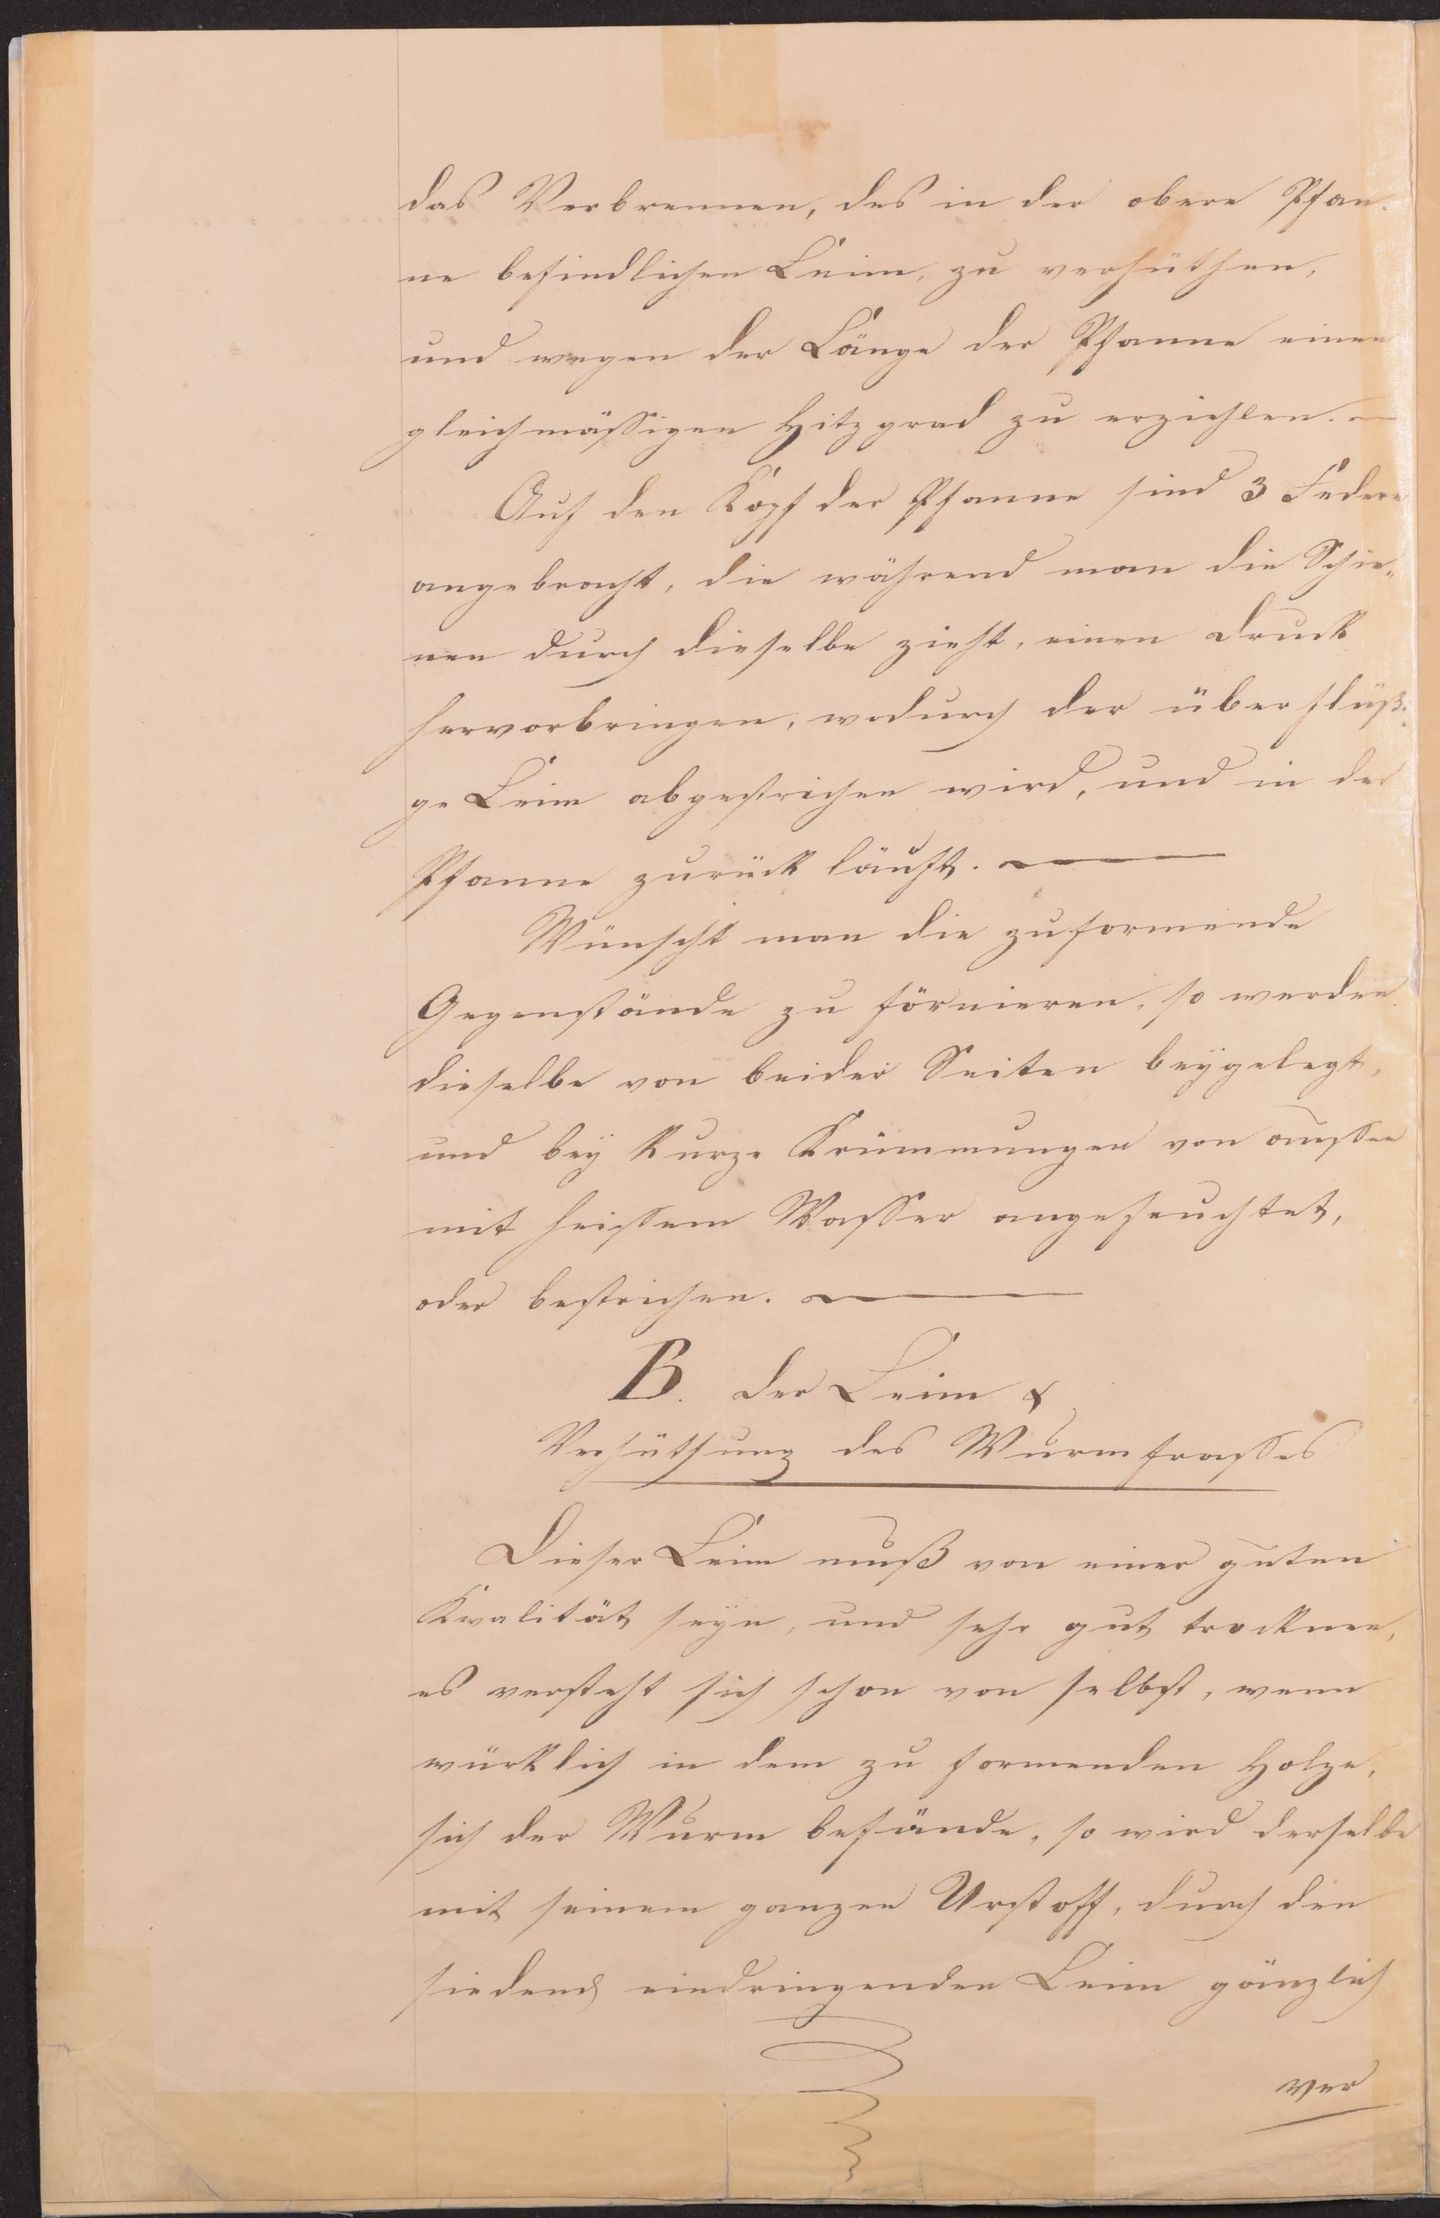 das Verbrennen, des in der obere Pfan-
ne befindlichen Leim, zu verhüthen,
und wegen der Länge der Pfanne einen
gleichmässigen Hitzgrad zu erziehlen. —
Auf den Kopf der Pfanne sind 3 Federn
angebracht, die während man die Schie-
nen durch dieselbe zieht, einen Druck
hervorbringen, wodurch der überflüßi-
ge Leim abgestrichen wird, und in der
Pfanne zurück läuft. —
Wünscht man die zuformende
Gegenstände zu förnieren, so werden
dieselbe von beider Seiten beygelegt,
und bey kurze Krümmungen von aussen
mit heissem Wasser angefeuchtet,
oder bestrichen. —
B. Der Leim &
Verhüthung des Wurmfrasses
Dieser Leim muß von einer guten
Kwalität seyn, und sehr gut trocknen,
es versteht sich schon von selbst, wenn
würklich in dem zu formenden Holze,
sich der Wurm befände, so wird derselbe
mit seinem ganzen Urstoff, durch den
siedend eindringenden Leim gänzlich
ver